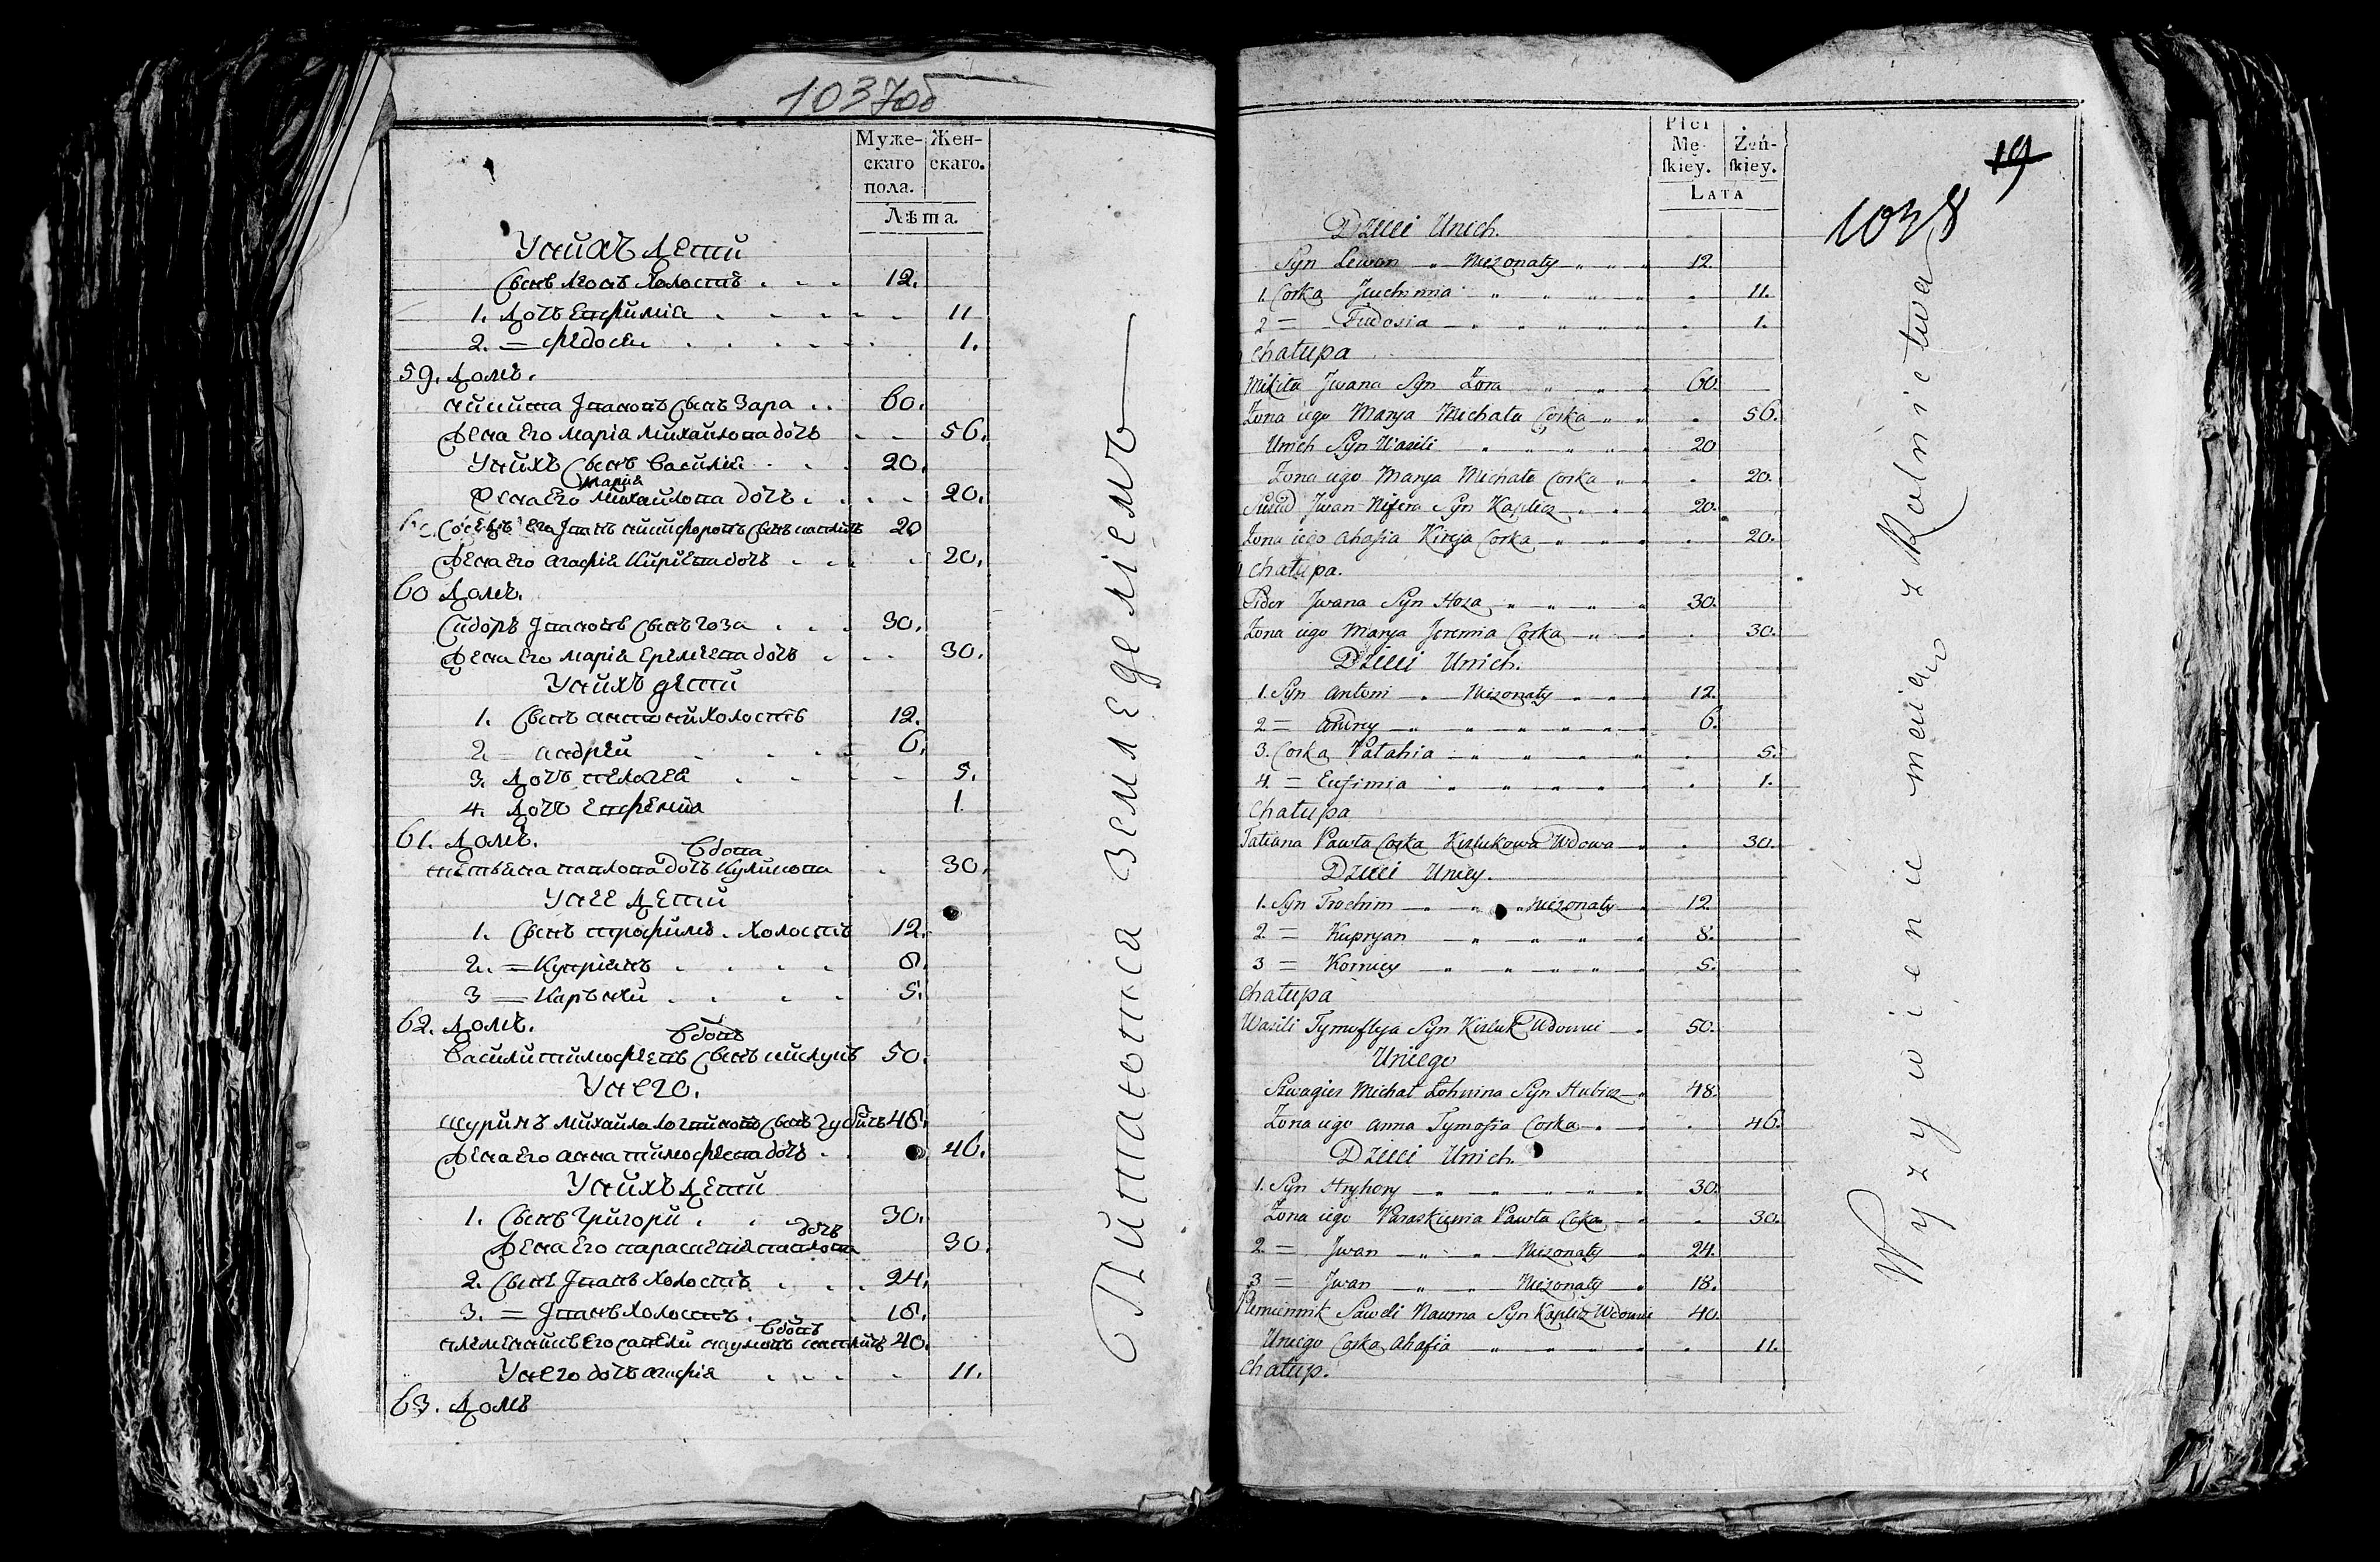 1037об
Муже-
скаго
пола.
Жен-
скаго.
Лѣта.
У нихъ дети
Сынъ Леонъ холостъ 12.
1. Дочь Евфимія 11
2. = Федося 1.
59. Домъ.
Никита Івановъ сынъ Зара 60.
Жена его Марія Михайлова дочь 56.
У нихъ сынъ Василій 20.
Марія
Жена его Михайлова дочь 20.
Соседъ его Іванъ Никифоровъ сынъ 20
Жена его Агафія Киріева дочь 20.
60 Домъ.
Сидоръ Івановъ сынъ Гоза 30.
Жена его Марія Еремiева дочь 30.
У нихъ дети
1. Сынъ Антони холостъ 12.
2. = Андрей 6.
3. Дочь Пелагея 5.
4. Дочь Евфемия 1.
61. Домъ.
вдова
Павлова дочь 30.
У нее дети
1. Сынъ Трофимъ. холостъ 12.
2. = Купріянъ 8.
3 = Карънѣй 5.
62. Домъ.
вдовъ
Василий Тимофеевъ сынъ Кислукъ 50.
У него.
Шуринъ Михайла сынъ Губичъ 48.
Жена его Анна Тимофеева дочь 46.
У нихъ дети
1. Сынъ Григори 30.
дочь
Жена его Параскевія Павлова 30.
2. Сынъ Іванъ холостъ 24.
3. = Іванъ холостъ. 18.
вдовъ
Племенникъ его Савели Наумовъ 40.
У него дочь Агафія 11.
63. Домъ
Питается земледеліемъ
Płci
Mę-
skiey.
Żeń-
skiey.
Lata
19
1038
Dzieci Unich.
Syn Lewon " Nieżonaty " 12.
1. Corka Jeuchimia " 11.
2 = Fiedosia " 1.
Chałupa
Mikita Jwana Syn Zora " 60.
Żona iego Marya Michała Corka " 56.
Unich Syn Wasili " 20
Żona iego Marya Michała Corka " 20.
Susied Jwan Nifera Syn Kaplicz 20.
Żona iego Ahafia Kireja Corka " 20.
Chałupa.
Sidor Jwana Syn Hoza " 30.
Żona iego Marya Jeremia Corka " 30.
Dzieci Unich.
1. Syn Antoni " Nieżonaty " 12.
2 = Andrey " 6.
3. Corka Pałahia " 5.
4. = Eufimia " 1.
Chałupa
Tatiana Pawła Corka Kislukowa Wdowa 30.
Dzieci Uniey.
1. Syn Trochim " Nieżonaty 12.
2 = Kupryan " 8.
3 = Korniey " 5.
Chałupa
Wasili Tymofieja Syn Kisluk Wdowiec 50.
Uniego
Szwagier Michał Syn Hubicz 48.
Żona iego Anna Tymofia Corka 46.
Dzieci Unich.
1. Syn Hryhory " 30.
Żona iego Paraskiewia Pawła Corka 30.
2. = Jwan " Nieżonaty 24.
3 = Jwan " Nieżonaty 18.
Plemiennik Saweli Nauma Syn Kaplicz Wdowiec 40.
Uniego Corka Ahafia " 11.
Chałup.
Wyżywienie maią z Rolnictwa